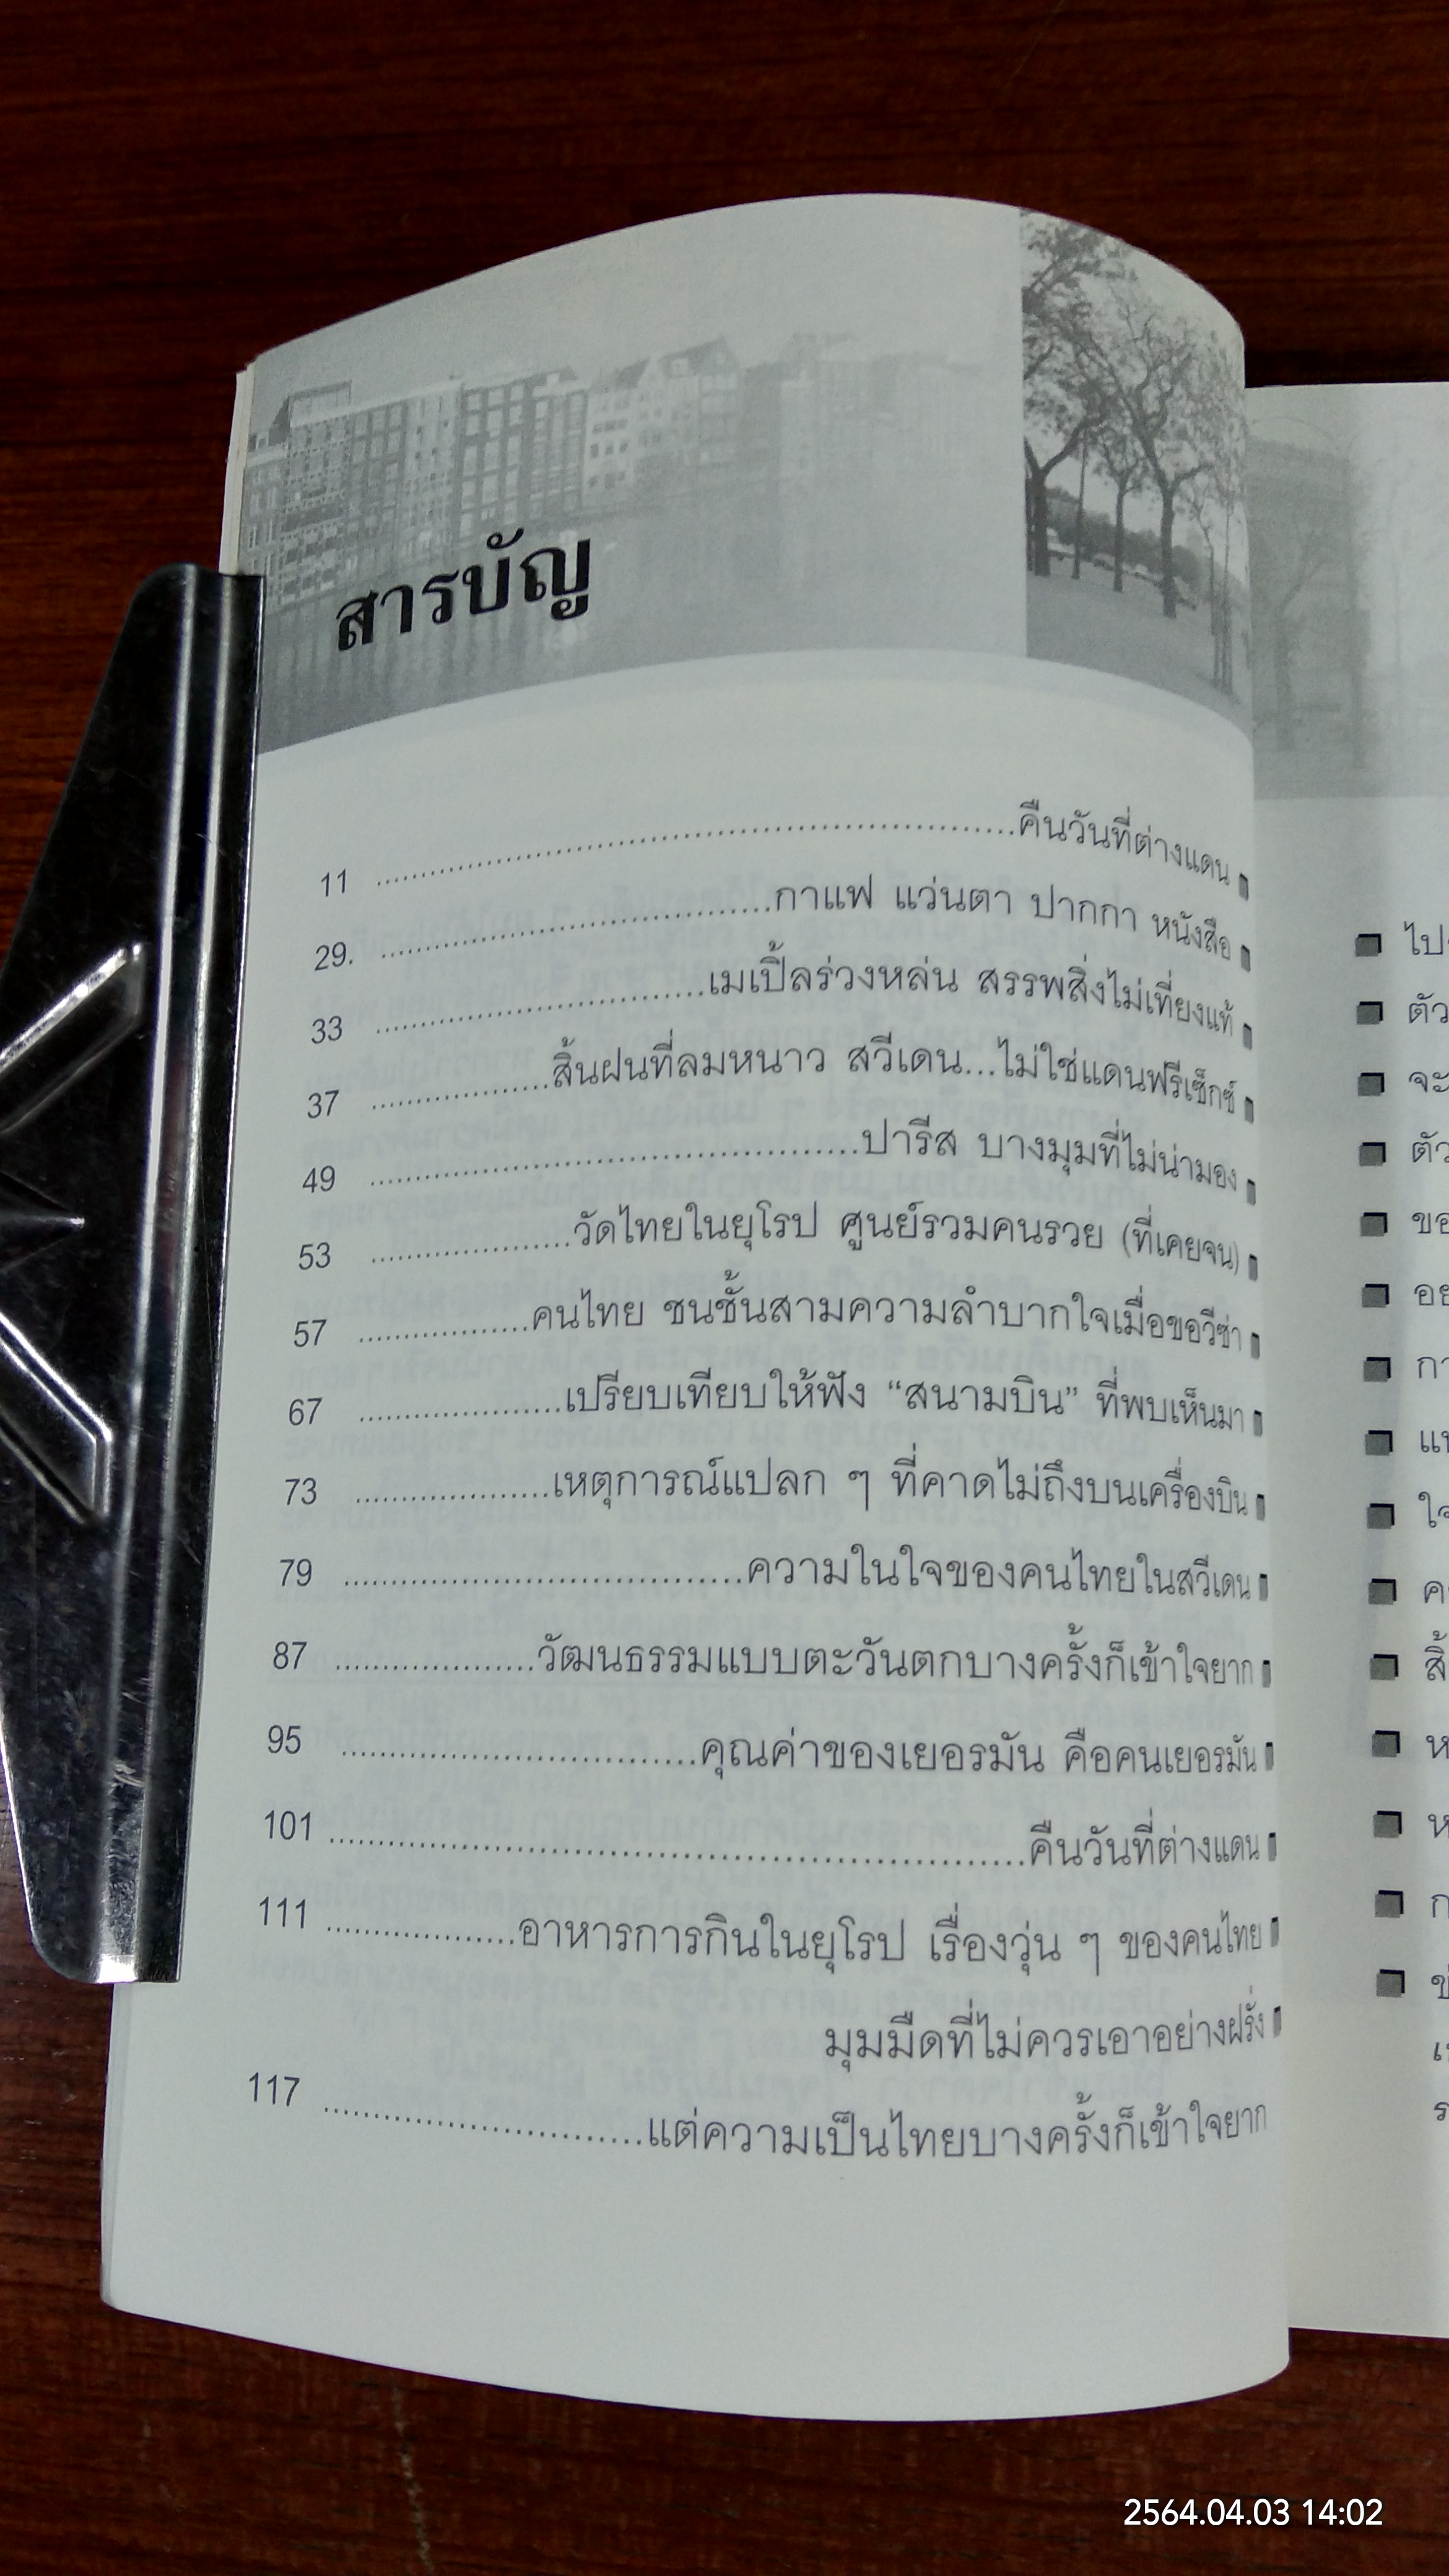 สารบัญ
11 ........คืนวันที่ต่างแดน
29. ........กาแฟ แว่นตา ปากกา หนังสือ
33 ........เมเปิ้ลร่วงหล่น สรรพสิ่งไม่เที่ยงแท้
37 ........สิ้นฝนที่ลมหนาว สวีเดน...ไม่ใช่แดนฟรีเซ็กซ์
49 ........ปารีส บางมุมที่ไม่น่ามอง
53 ........วัดไทยในยุโรป ศูนย์รวมคนรวย (ที่เคยจน)
57 ........คนไทย ชนชั้นสามความลำบากใจเมื่อขอวีซ่า
67 ........เปรียบเทียบให้ฟัง “สนามบิน” ที่พบเห็นมา
73 ........เหตุการณ์แปลก ๆ ที่คาดไม่ถึงบนเครื่องบิน
79 ........ความในใจของคนไทยในสวีเดน
87 ........วัฒนธรรมแบบตะวันตกบางครั้งก็เข้าใจยาก
95 ........คุณค่าของเยอรมัน คือคนเยอรมัน
101 ........คืนวันที่ต่างแดน
111 ........อาหารการกินในยุโรป เรื่องวุ่น ๆ ของคนไทย
มุมมืดที่ไม่ควรเอาอย่างฝรั่ง
117 ........แต่ความเป็นไทยบางครั้งก็เข้าใจยาก
2564.04.03 14:02